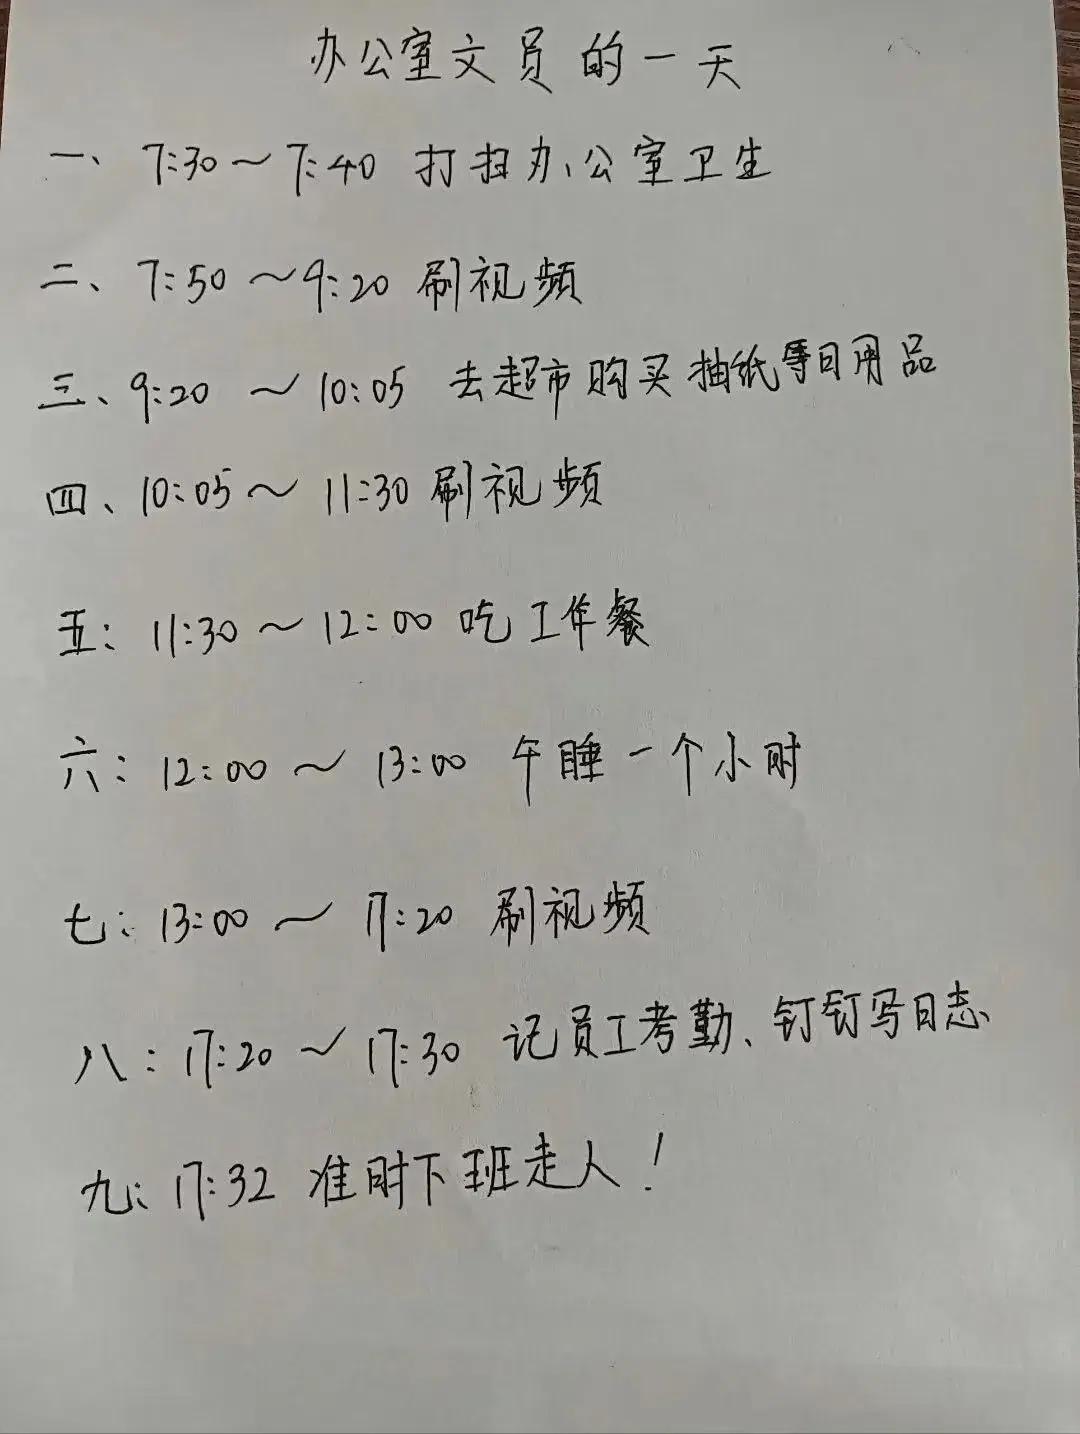 办公室文员的一天
一、7:30～7:40 打扫办公室卫生
二、7:50～9:20 刷视频
三、9:20～10:05 去超市购买抽纸等日用品
四、10:05～11:30 刷视频
五：11:30～12:00 吃工作餐
六：12:00～13:00 午睡一个小时
七：13:00～17:20 刷视频
八：17:20～17:30 记员工考勤、钉钉写日志
九：17:32 准时下班走人！